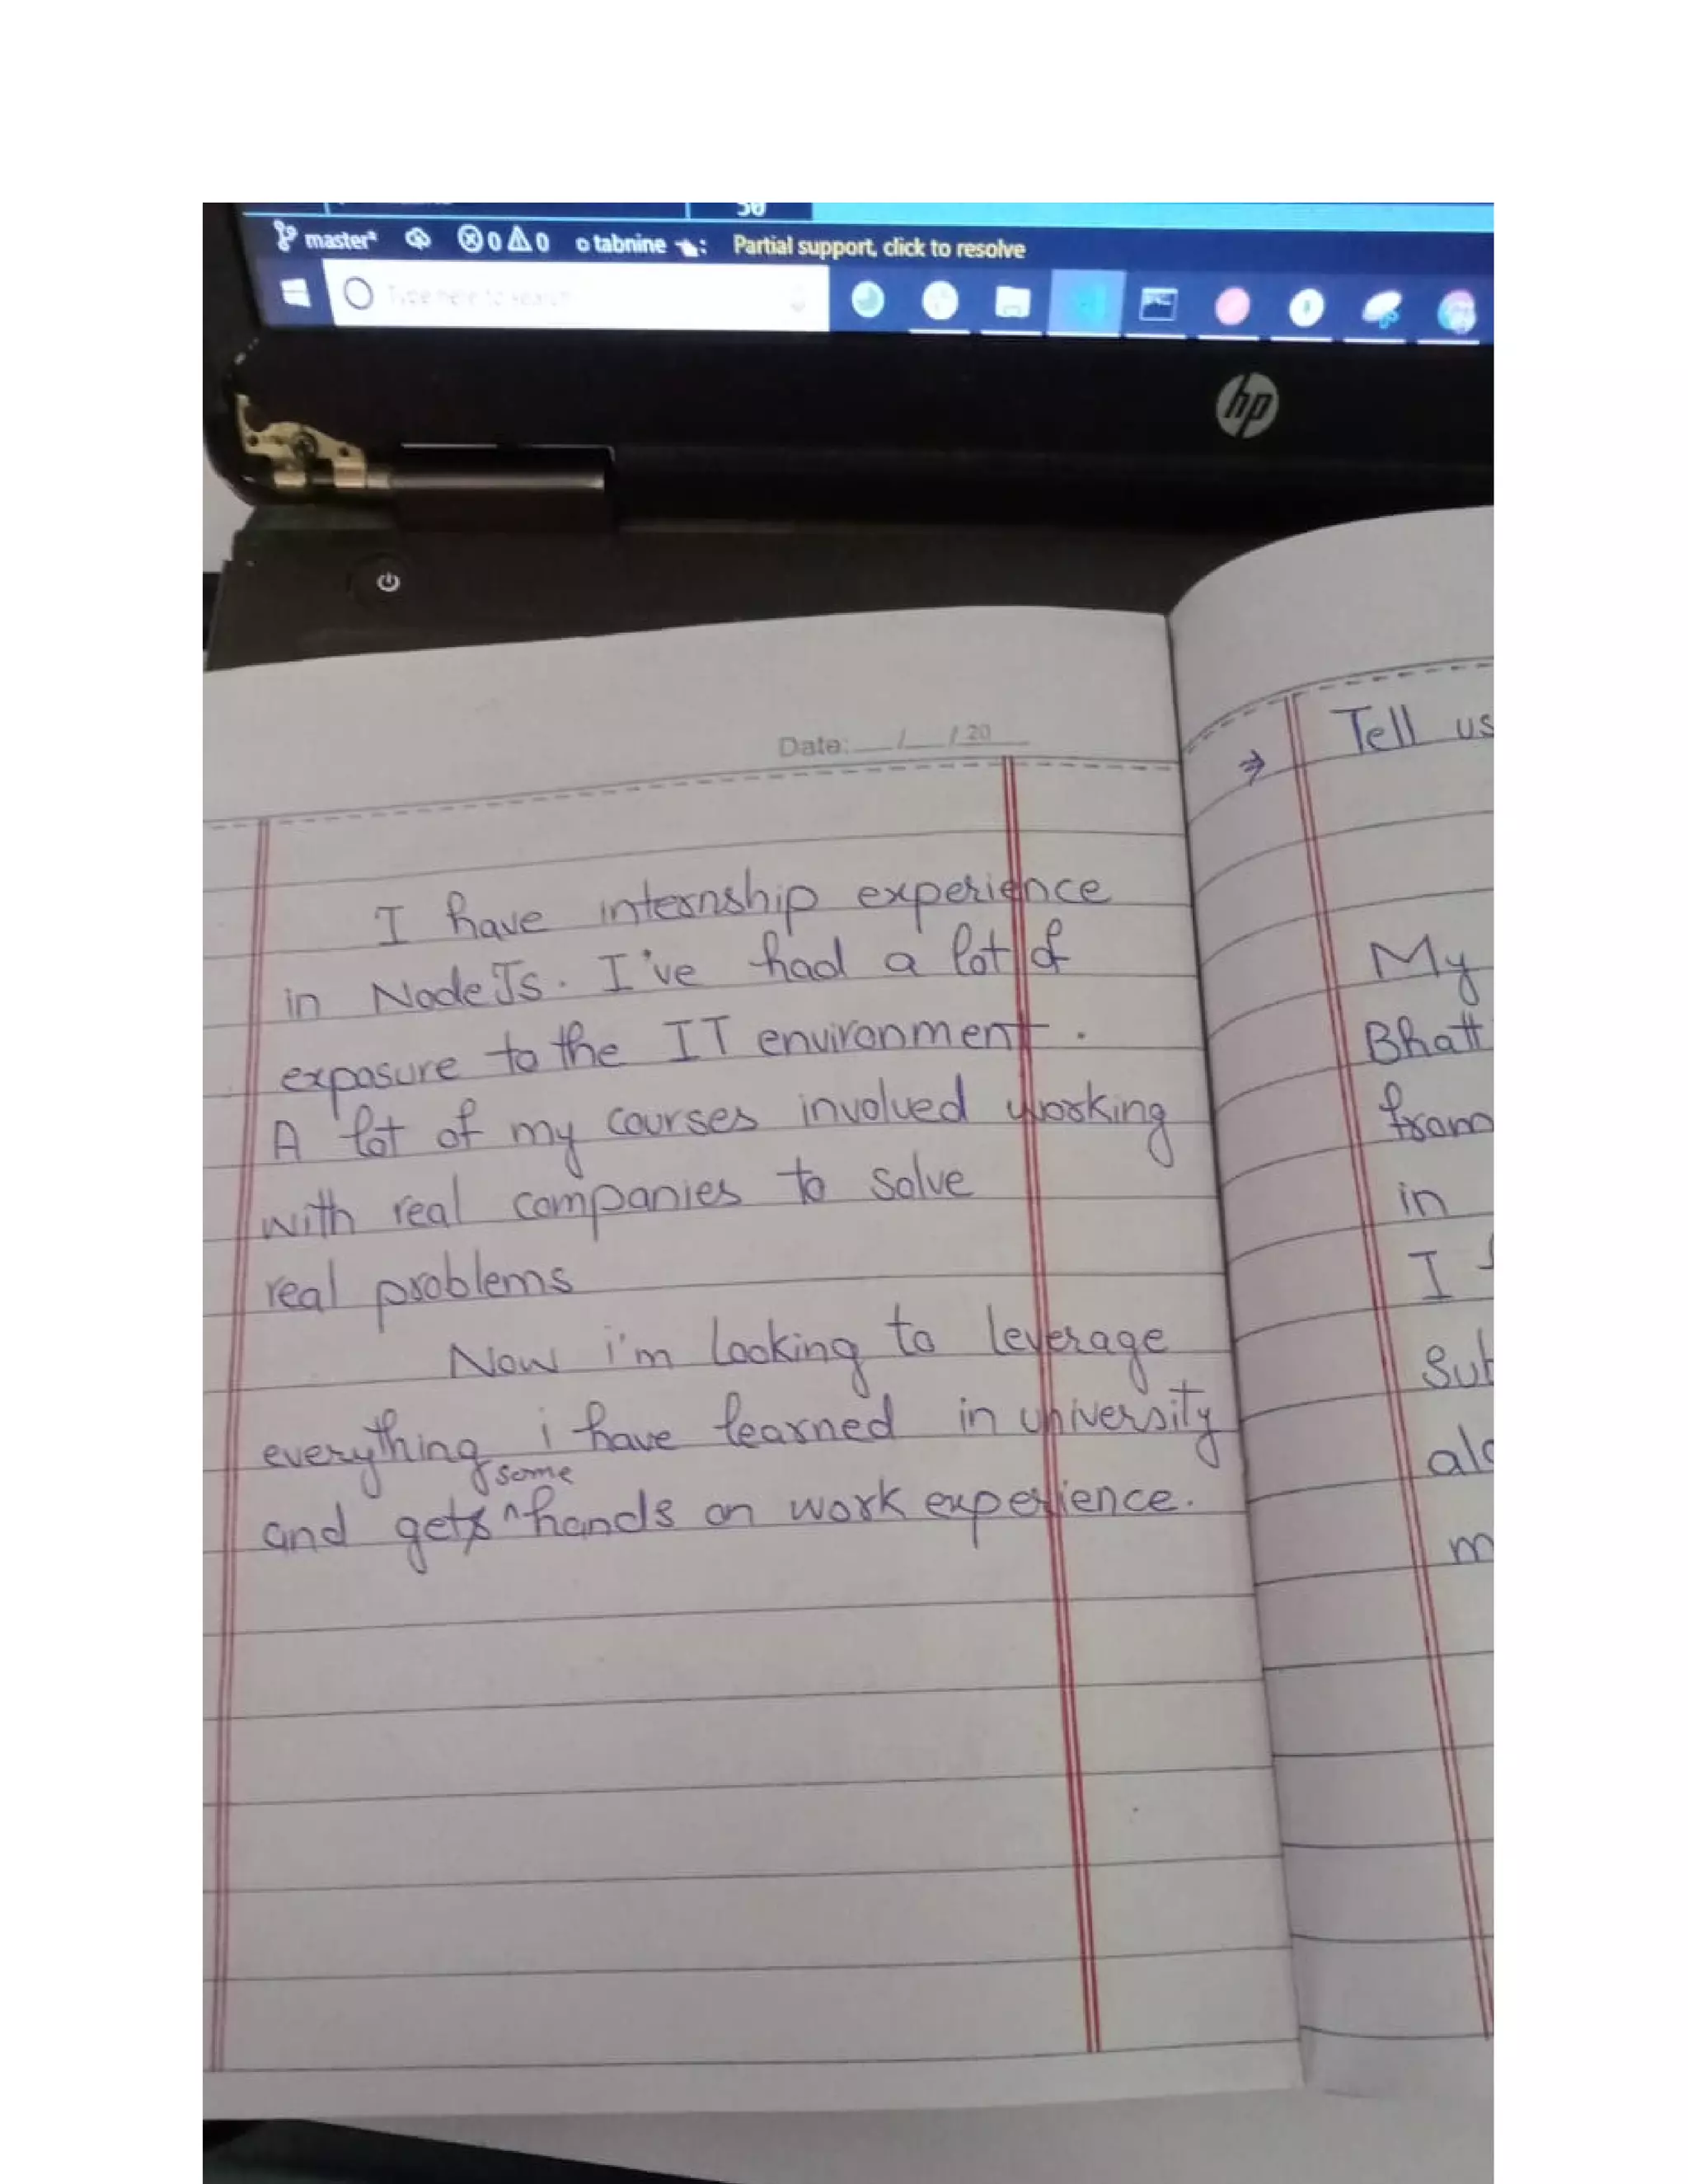 50
master* 0 0 tabnine : Partial support, click to resolve
Type here to search
hp
Date: / / 20
I have internship experience
in NodeJs. I've had a lot of
exposure to the IT environment.
A lot of my courses involved working
with real companies to solve
real problems
Now i'm looking to leverage
everything i have learned in university
some
and get hands on work experience.
⇒ Tell us
My
Bhatt
from
in
I
Sub
alo
m